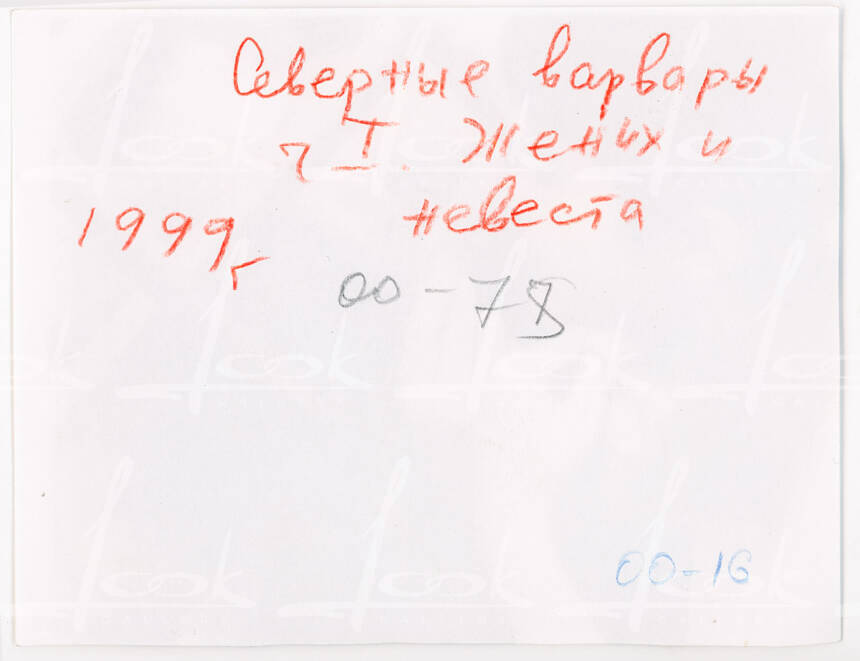 Северные варвары
ч I. Жених и
невеста
1999 г
00-78
00-16
look